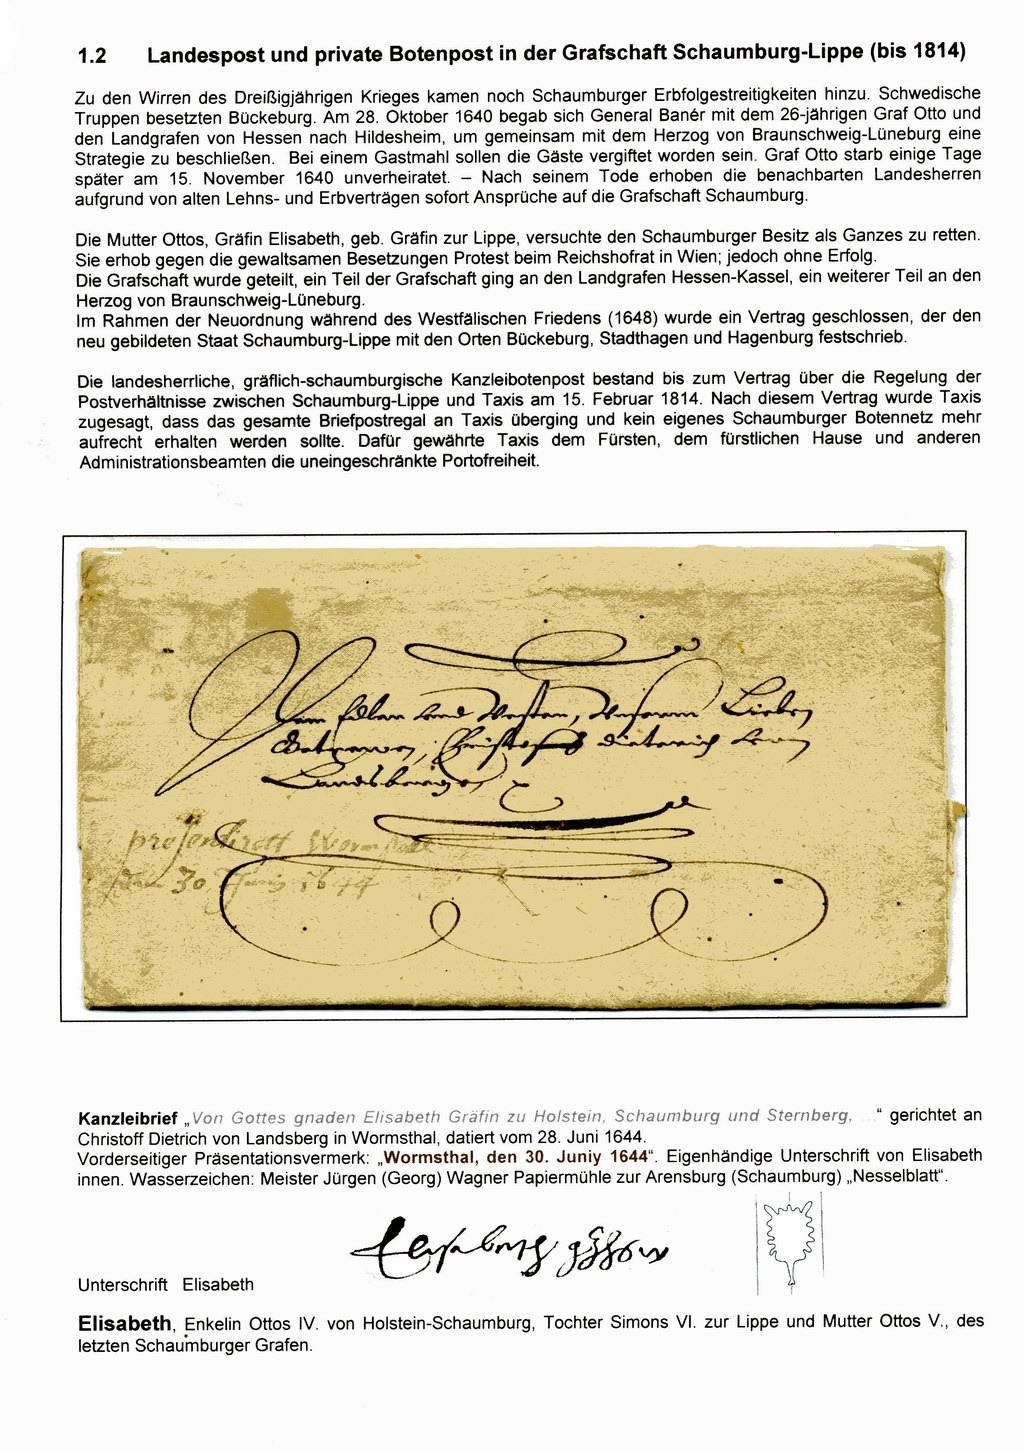 1.2 Landespost und private Botenpost in der Grafschaft Schaumburg-Lippe (bis 1814)
Zu den Wirren des Dreißigjährigen Krieges kamen noch Schaumburger Erbfolgestreitigkeiten hinzu. Schwedische
Truppen besetzten Bückeburg. Am 28. Oktober 1640 begab sich General Banér mit dem 26-jährigen Graf Otto und
den Landgrafen von Hessen nach Hildesheim, um gemeinsam mit dem Herzog von Braunschweig-Lüneburg eine
Strategie zu beschließen. Bei einem Gastmahl sollen die Gäste vergiftet worden sein. Graf Otto starb einige Tage
später am 15. November 1640 unverheiratet. – Nach seinem Tode erhoben die benachbarten Landesherren
aufgrund von alten Lehns- und Erbverträgen sofort Ansprüche auf die Grafschaft Schaumburg.
Die Mutter Ottos, Gräfin Elisabeth, geb. Gräfin zur Lippe, versuchte den Schaumburger Besitz als Ganzes zu retten.
Sie erhob gegen die gewaltsamen Besetzungen Protest beim Reichshofrat in Wien; jedoch ohne Erfolg.
Die Grafschaft wurde geteilt, ein Teil der Grafschaft ging an den Landgrafen Hessen-Kassel, ein weiterer Teil an den
Herzog von Braunschweig-Lüneburg.
Im Rahmen der Neuordnung während des Westfälischen Friedens (1648) wurde ein Vertrag geschlossen, der den
neu gebildeten Staat Schaumburg-Lippe mit den Orten Bückeburg, Stadthagen und Hagenburg festschrieb.
Die landesherrliche, gräflich-schaumburgische Kanzleibotenpost bestand bis zum Vertrag über die Regelung der
Postverhältnisse zwischen Schaumburg-Lippe und Taxis am 15. Februar 1814. Nach diesem Vertrag wurde Taxis
zugesagt, dass das gesamte Briefpostregal an Taxis überging und kein eigenes Schaumburger Botennetz mehr
aufrecht erhalten werden sollte. Dafür gewährte Taxis dem Fürsten, dem fürstlichen Hause und anderen
Administrationsbeamten die uneingeschränkte Portofreiheit.
Dem Edlen und Vesten, Unserm Lieben
Getrewen, Christoff dieterich von
Landsbergen
30 Juniy 1644
Kanzleibrief „Von Gottes gnaden Elisabeth Gräfin zu Holstein, Schaumburg und Sternberg, ...“ gerichtet an
Christoff Dietrich von Landsberg in Wormsthal, datiert vom 28. Juni 1644.
Vorderseitiger Präsentationsvermerk: „Wormsthal, den 30. Juniy 1644“. Eigenhändige Unterschrift von Elisabeth
innen. Wasserzeichen: Meister Jürgen (Georg) Wagner Papiermühle zur Arensburg (Schaumburg) „Nesselblatt“.
Unterschrift Elisabeth
Elisabeth, Enkelin Ottos IV. von Holstein-Schaumburg, Tochter Simons VI. zur Lippe und Mutter Ottos V., des
letzten Schaumburger Grafen.